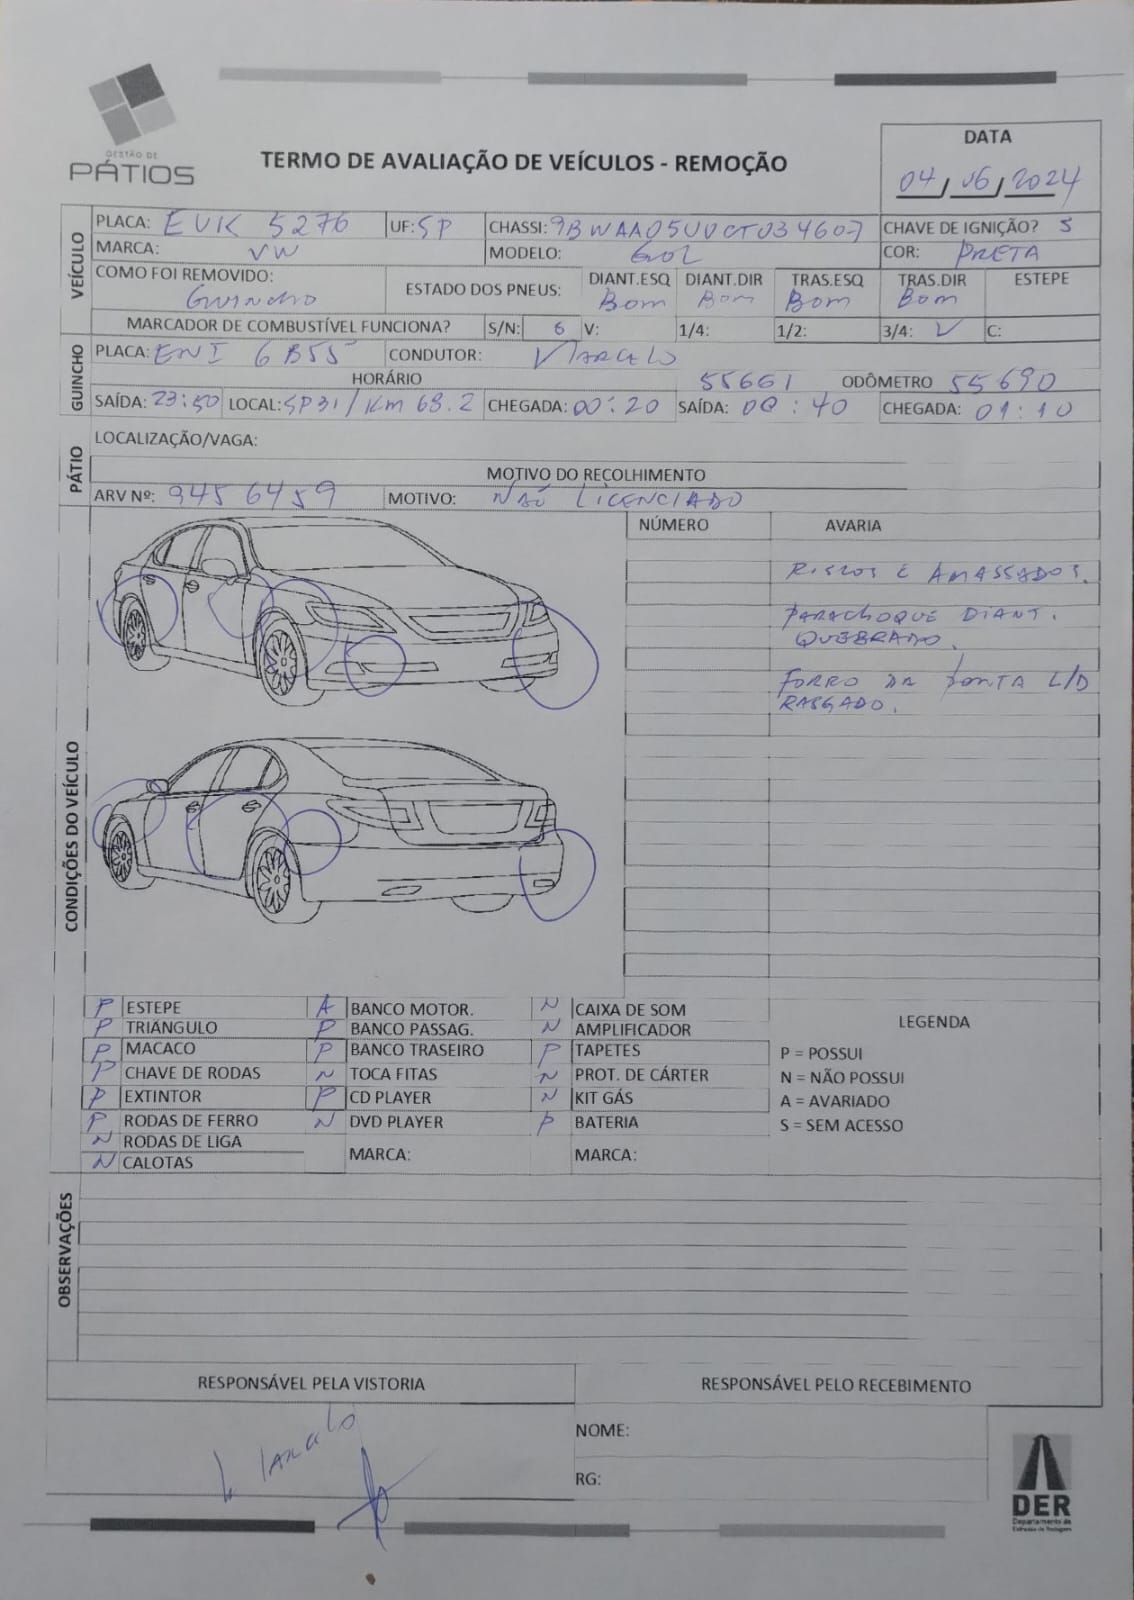 GESTÃO DE
PÁTIOS
TERMO DE AVALIAÇÃO DE VEÍCULOS - REMOÇÃO
DATA
04/06/2024
VEÍCULO
PLACA: EVK 5276 UF: SP CHASSI: 9BWAA05U0CT034607 CHAVE DE IGNIÇÃO? S
MARCA: VW MODELO: GOL COR: PRETA
COMO FOI REMOVIDO: GUINCHO ESTADO DOS PNEUS: DIANT.ESQ Bom DIANT.DIR Bom TRAS.ESQ Bom TRAS.DIR Bom ESTEPE
MARCADOR DE COMBUSTÍVEL FUNCIONA? S/N: V: 1/4: 1/2: 3/4: V C:
GUINCHO
PLACA: ENI 6B55 CONDUTOR: MARCELO
HORÁRIO 55661 ODÔMETRO 55690
SAÍDA: 23:50 LOCAL: SP31/Km 68.2 CHEGADA: 00:20 SAÍDA: 00:40 CHEGADA: 01:10
PÁTIO
LOCALIZAÇÃO/VAGA:
MOTIVO DO RECOLHIMENTO
ARV Nº: 9456459 MOTIVO: NÃO LICENCIADO
CONDIÇÕES DO VEÍCULO
NÚMERO AVARIA
RISCOS E AMASSADOS.
PARACHOQUE DIANT.
QUEBRADO.
FORRO DA PORTA L/D
RASGADO.
P ESTEPE A BANCO MOTOR. N CAIXA DE SOM
LEGENDA
P TRIÂNGULO P BANCO PASSAG. N AMPLIFICADOR
P MACACO P BANCO TRASEIRO P TAPETES P = POSSUI
P CHAVE DE RODAS N TOCA FITAS N PROT. DE CÁRTER N = NÃO POSSUI
P EXTINTOR P CD PLAYER N KIT GÁS A = AVARIADO
P RODAS DE FERRO N DVD PLAYER P BATERIA S = SEM ACESSO
N RODAS DE LIGA
MARCA: MARCA:
N CALOTAS
OBSERVAÇÕES
RESPONSÁVEL PELA VISTORIA RESPONSÁVEL PELO RECEBIMENTO
Marcelo
NOME:
RG:
DER
Departamento de
Estradas de Rodagem